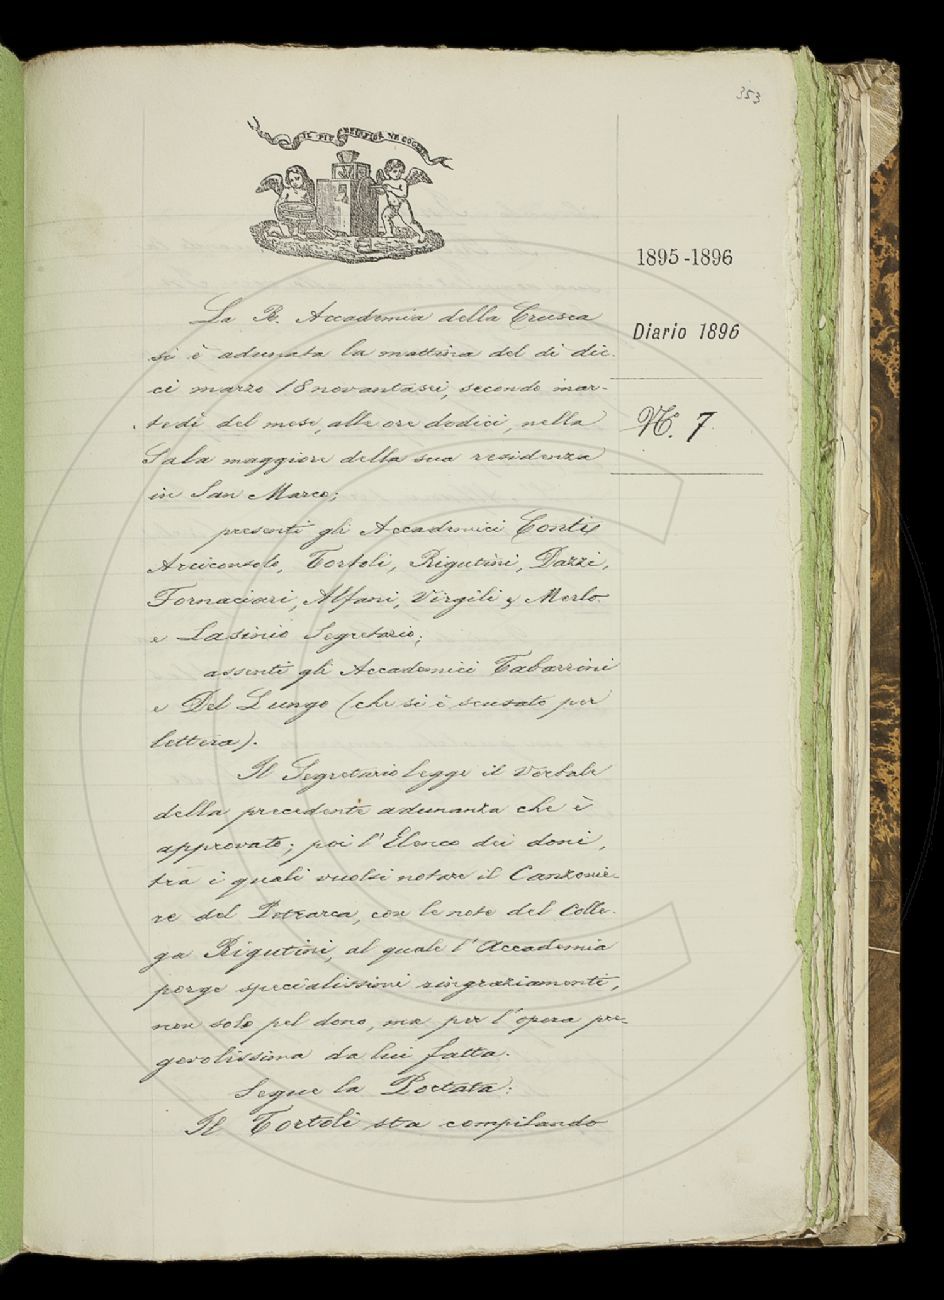 353
IL PIÙ BEL FIOR NE COGLIE
1895-1896
Diario 1896
N.° 7
La R. Accademia della Crusca
si è adunata la mattina del dì die-
ci marzo 18novantasei, secondo mar-
tedì del mese, alle ore dodici, nella
Sala maggiore della sua residenza
in San Marco;
presenti gli Accademici Conti,
Arciconsolo, Tortoli, Rigutini, Dazzi,
Fornaciari, Alfani, Virgili, Merlo
e Lasinio Segretario;
assenti gli Accademici Tabarrini
e Del Lungo (che si è scusato per
lettera).
Il Segretario legge il Verbale
della precedente adunanza che è
approvato; poi l'Elenco dei doni,
tra i quali vuolsi notare il Canzonie-
re del Petrarca, con le note del Colle-
ga Rigutini, al quale l'Accademia
porge specialissimi ringraziamenti,
non solo pel dono, ma per l'opera pre-
gevolissima da lui fatta.
Segue la Portata:
Il Tortoli sta compilando